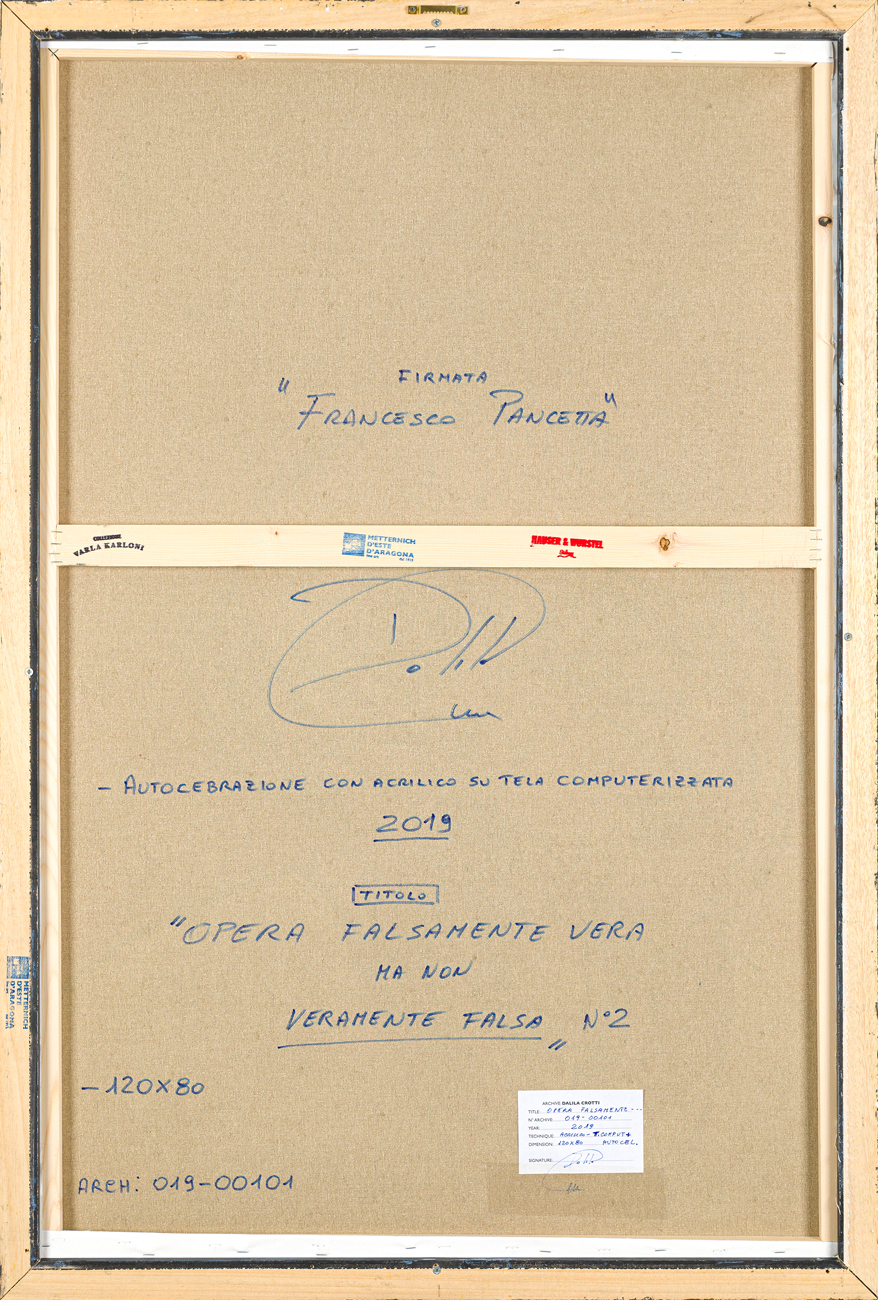 FIRMATA
"FRANCESCO PANCETTA"
COLLEZIONE
VARLA KARLONI
METTERNICH
D'ESTE
D'ARAGONA
HAUSER & WURSTEL
- AUTOCEBRAZIONE CON ACRILICO SU TELA COMPUTERIZZATA
2019
TITOLO
"OPERA FALSAMENTE VERA
MA NON
VERAMENTE FALSA" N°2
- 120X80
ARCHIVE DALILA CROTTI
TITLE: OPERA FALSAMENTE ---
N° ARCHIVE: 019-00101
YEAR: 2019
TECHNIQUE: ACRILICO - T.COMPUT +
DIMENSION: 120X80 AUTOCEL.
SIGNATURE:
ARCH: 019-00101
METTERNICH
D'ESTE
D'ARAGONA